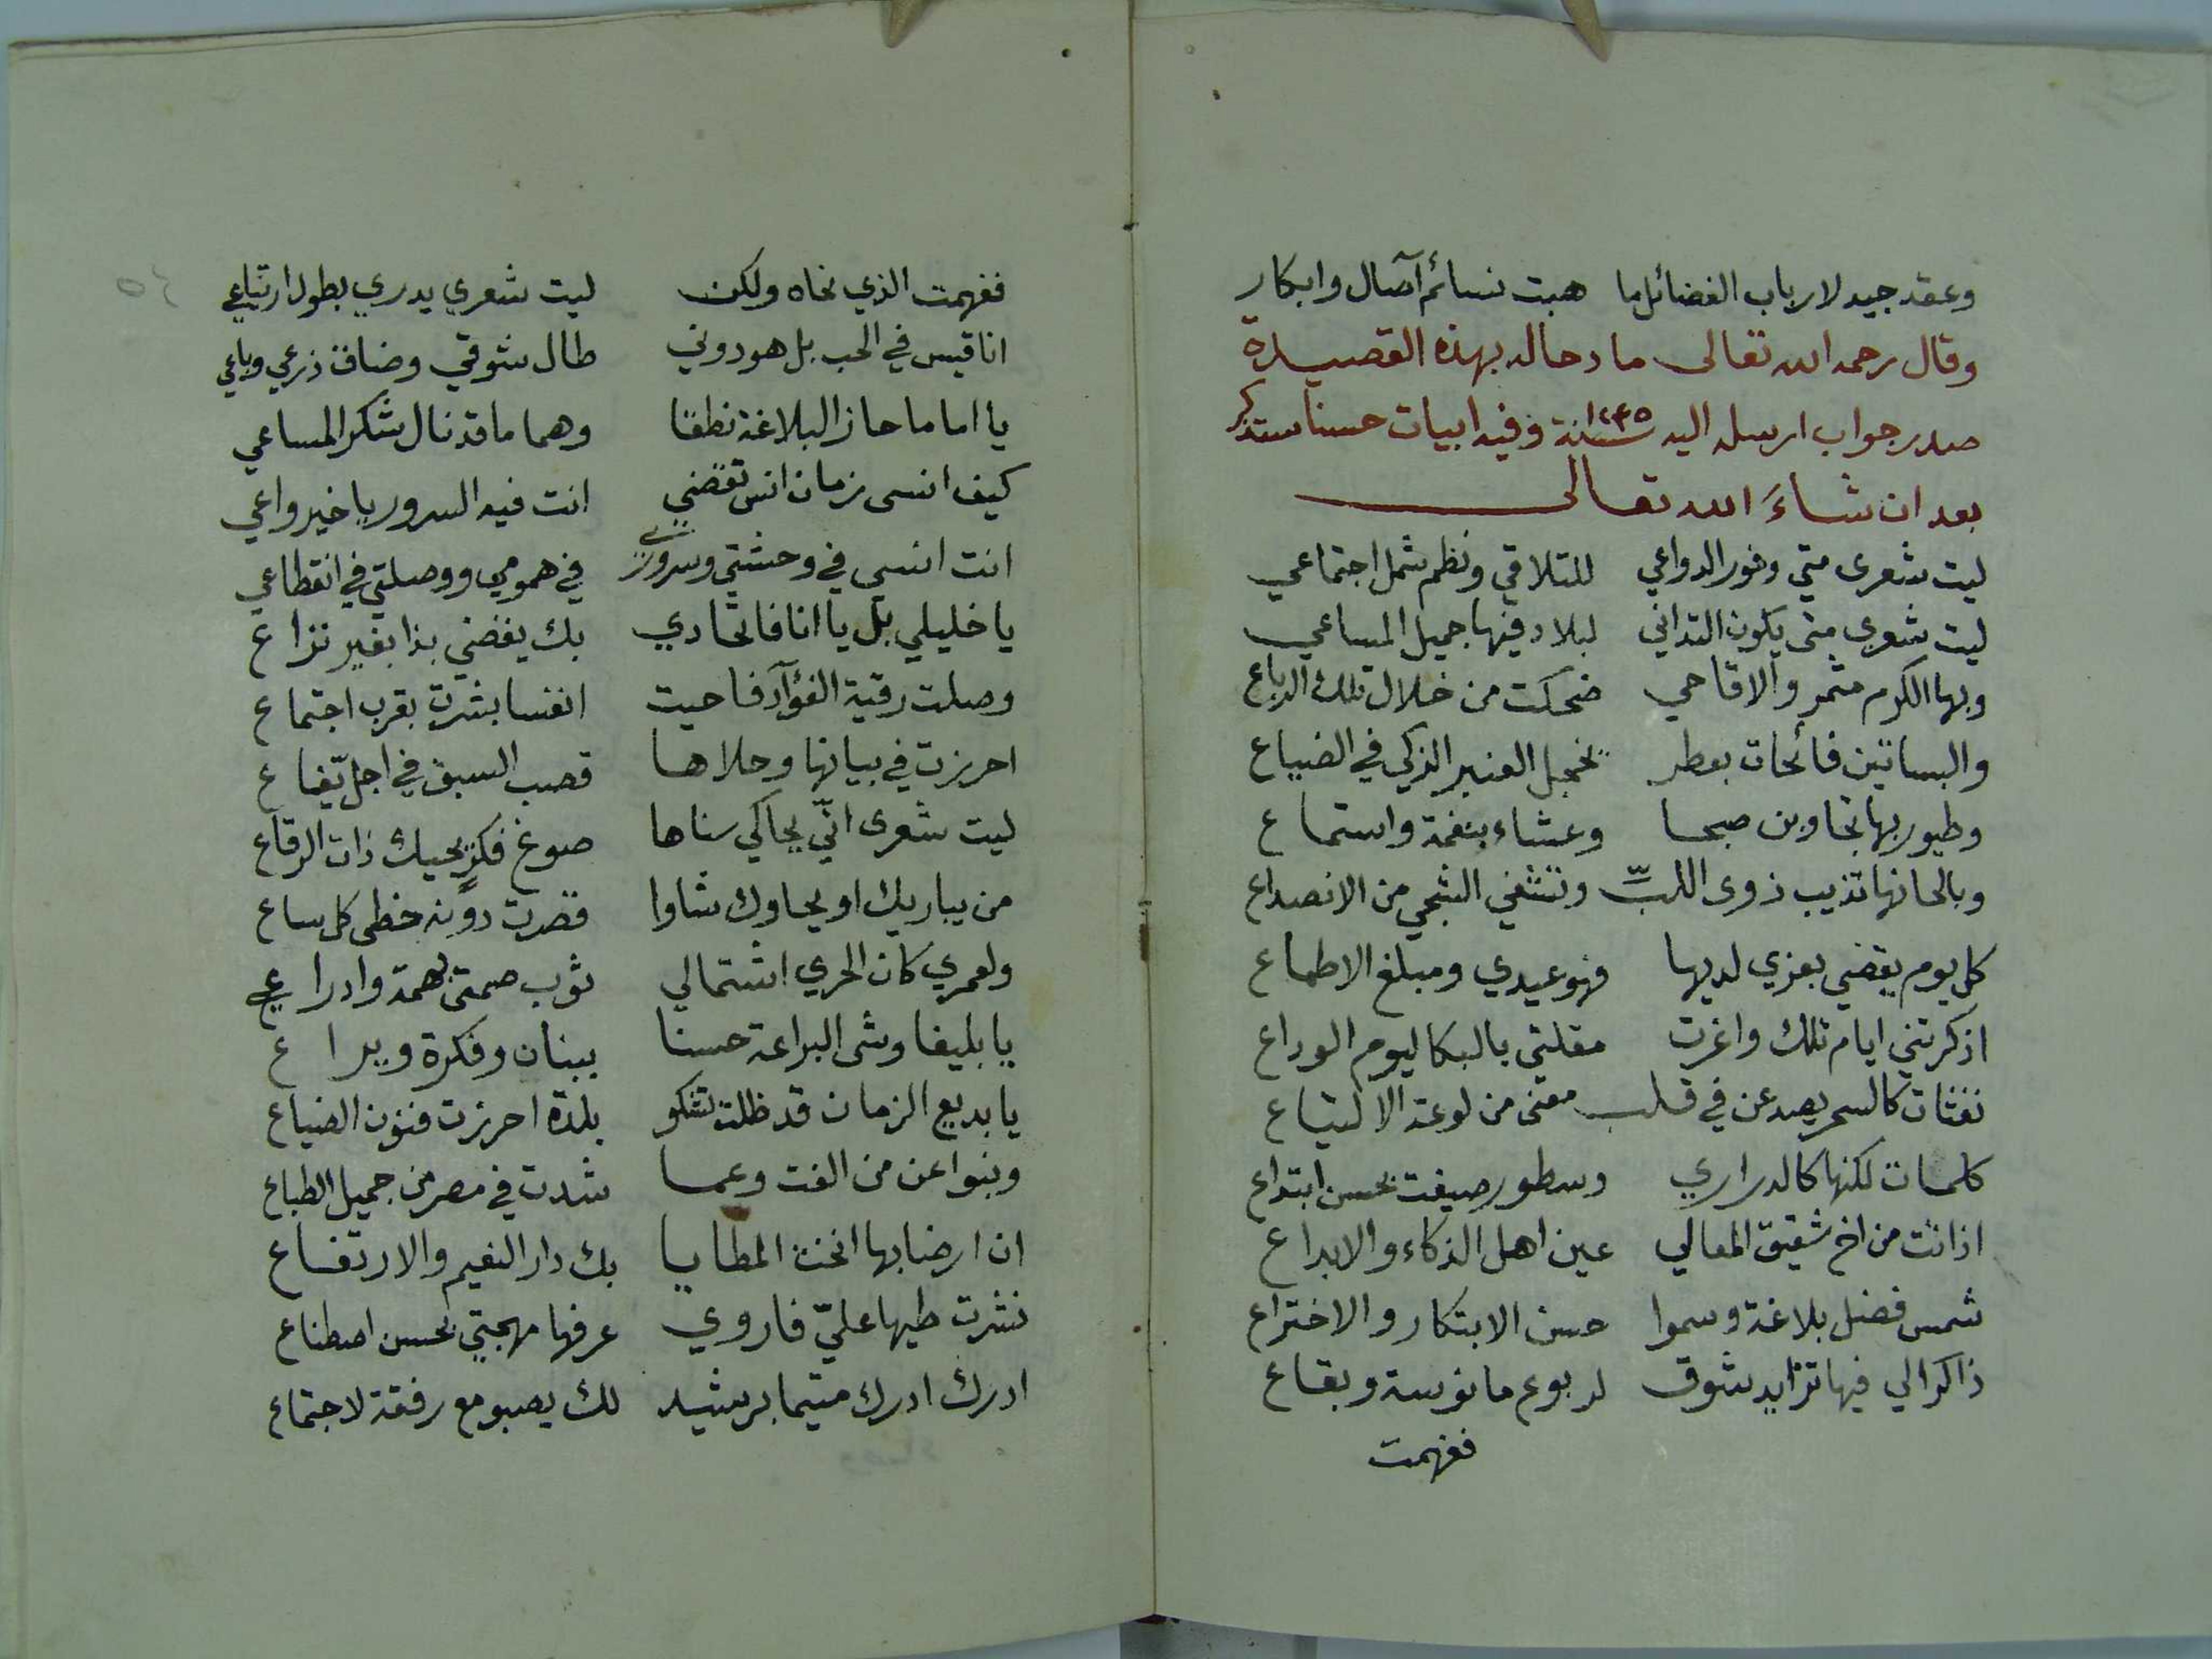 وعقد جيد لارباب الفضائل ما هبت نسائم آصال وابكار
وقال رحمه الله تعالى مادحا له بهذه القصيدة
صدر جواب ارسله اليه سنة ١٢٤٥ وفيه ابيات حسنا ستذكر
بعد ان شاءَ الله تعالى
ليت شعرى متي وفور الدواعي للتلاقي ونظم شمل اجتماعي
ليت شعرى متى يكون التداني لبلاد فيها جميل المساعي
وبها الكرم مثمر والاقاحي ضحكت من خلال تلك الرباع
والبساتين فائحات بعطر يخجل العنبر الذكي في الضياع
وطيور بها تجاوبن صبحا وعشاء بنغمة واستماع
وبالحانها تذيب ذوى اللبّ وتشفي الشجي من الانصداع
كل يوم يقضي بعزي لديها فهو عيدي ومبلغ الاطماع
اذكرتني ايام تلك واغرت مقلتي بالبكا ليوم الوداع
نفثات كالسحر يصدعن في قلب معنى من لوعة الالتياع
كلمات لكنها كالدراري وسطور صيغت بحسن ابتداع
اذ انت من اخ شقيق المعالي عين اهل الذكاء والابداع
شمس فضل بلاغة وسموا حسن الابتكار والاختراع
ذاكرا لي فيها تزايد شوق لربوع مانوسة وبقاع
ففهمت
ففهمت الذي نحاه ولكن ليت شعري يدري بطول ارتياعي
انا قيس في الحب بل هو دوني طال شوقي وضاق ذرعي وباعي
يا اماما حاز البلاغة نطقا وهما ما قد نال شكر المساعي
كيف انسى زمان انس تقضي انت فيه السرور يا خير واعي
انت انسي في وحشتي وسروري في همومي ووصلتي في انقطاعي
يا خليلي بل يا انا فاتحادي بك يقضي بذا بغير نزاع
وصلت رقية الفؤآد فاحيت انفسا بشرت بقرب اجتماع
احرزت في بيانها وحلاها قصب السبق في اجل يفاع
ليت شعرى انّي يحاكي سناها صوغ فكرٍ يحيك ذات الرقاع
من يباريك او يحاوك شاوا قصرت دونه خطى كل ساع
ولعمري كان الحري اشتمالي ثوب صمتي بهمة وادراعي
يا بليغا وشى البراعة حسنا ببنان وفكرة ويراع
يا بديع الزمان قد ظلت تشكو بلدة احرزت فنون الضياع
وبنوا عن من الفت وعما شدت في مصر من جميل الطباع
ان ارضا بها انخت المطايا بك دار النعيم والارتفاع
نشرت طيها عليّ فاروي عرفها مهجتي بحسن اصطناع
ادرك ادرك متيما برشيد لك يصبو مع رفقة لاجتماع